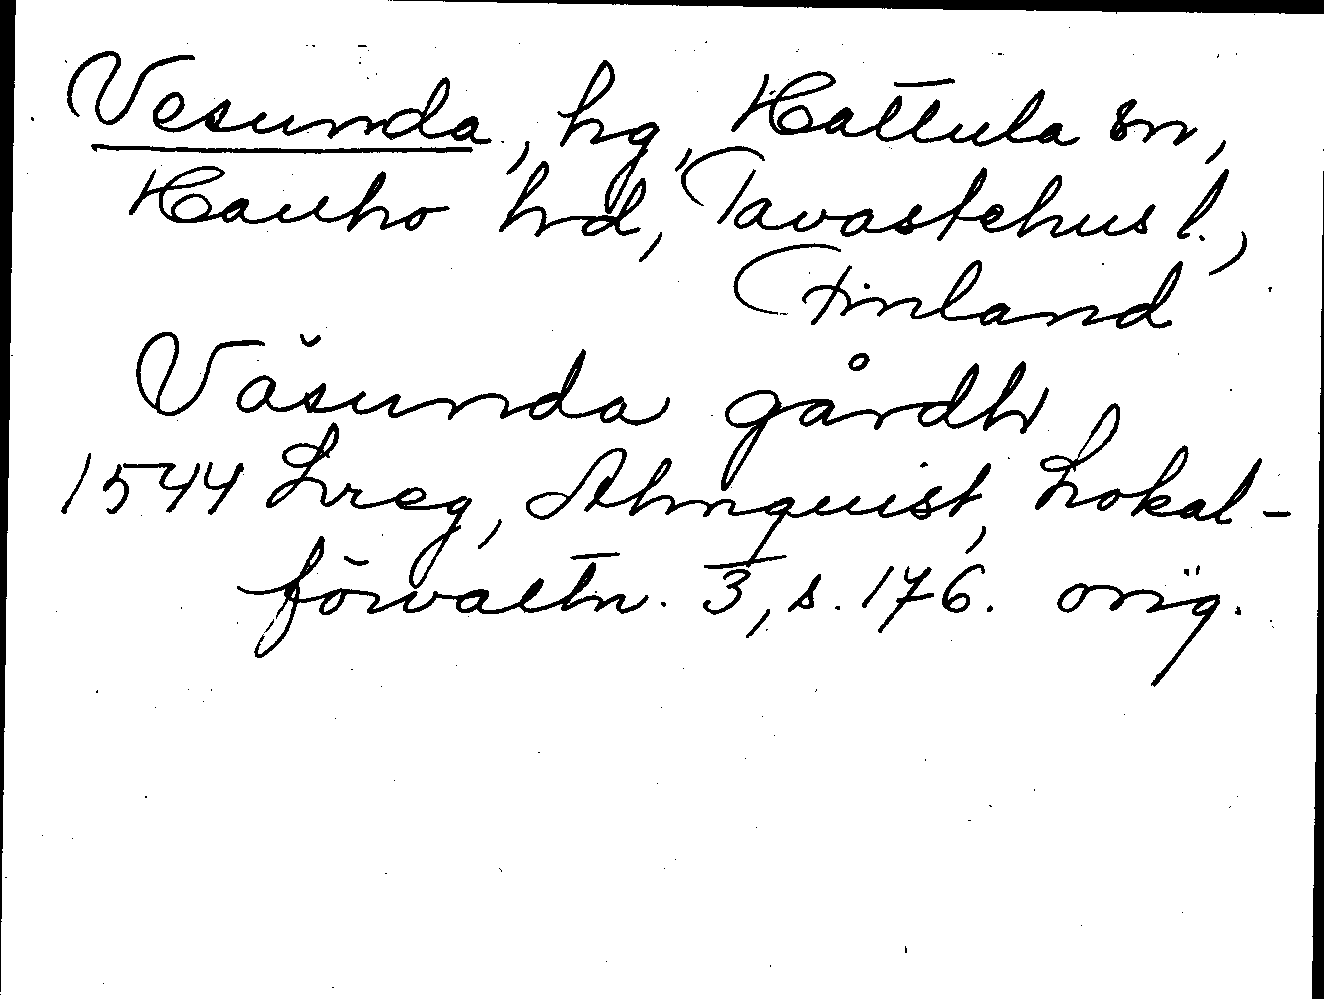 Vesunda, hg, Hattula sn,
Hauho hrd, Tavastehus l.,
Finland
Väsunda gårdh
1544 Lreg, Almquist, Lokal-
förvaltn. 3, s. 176. orig.